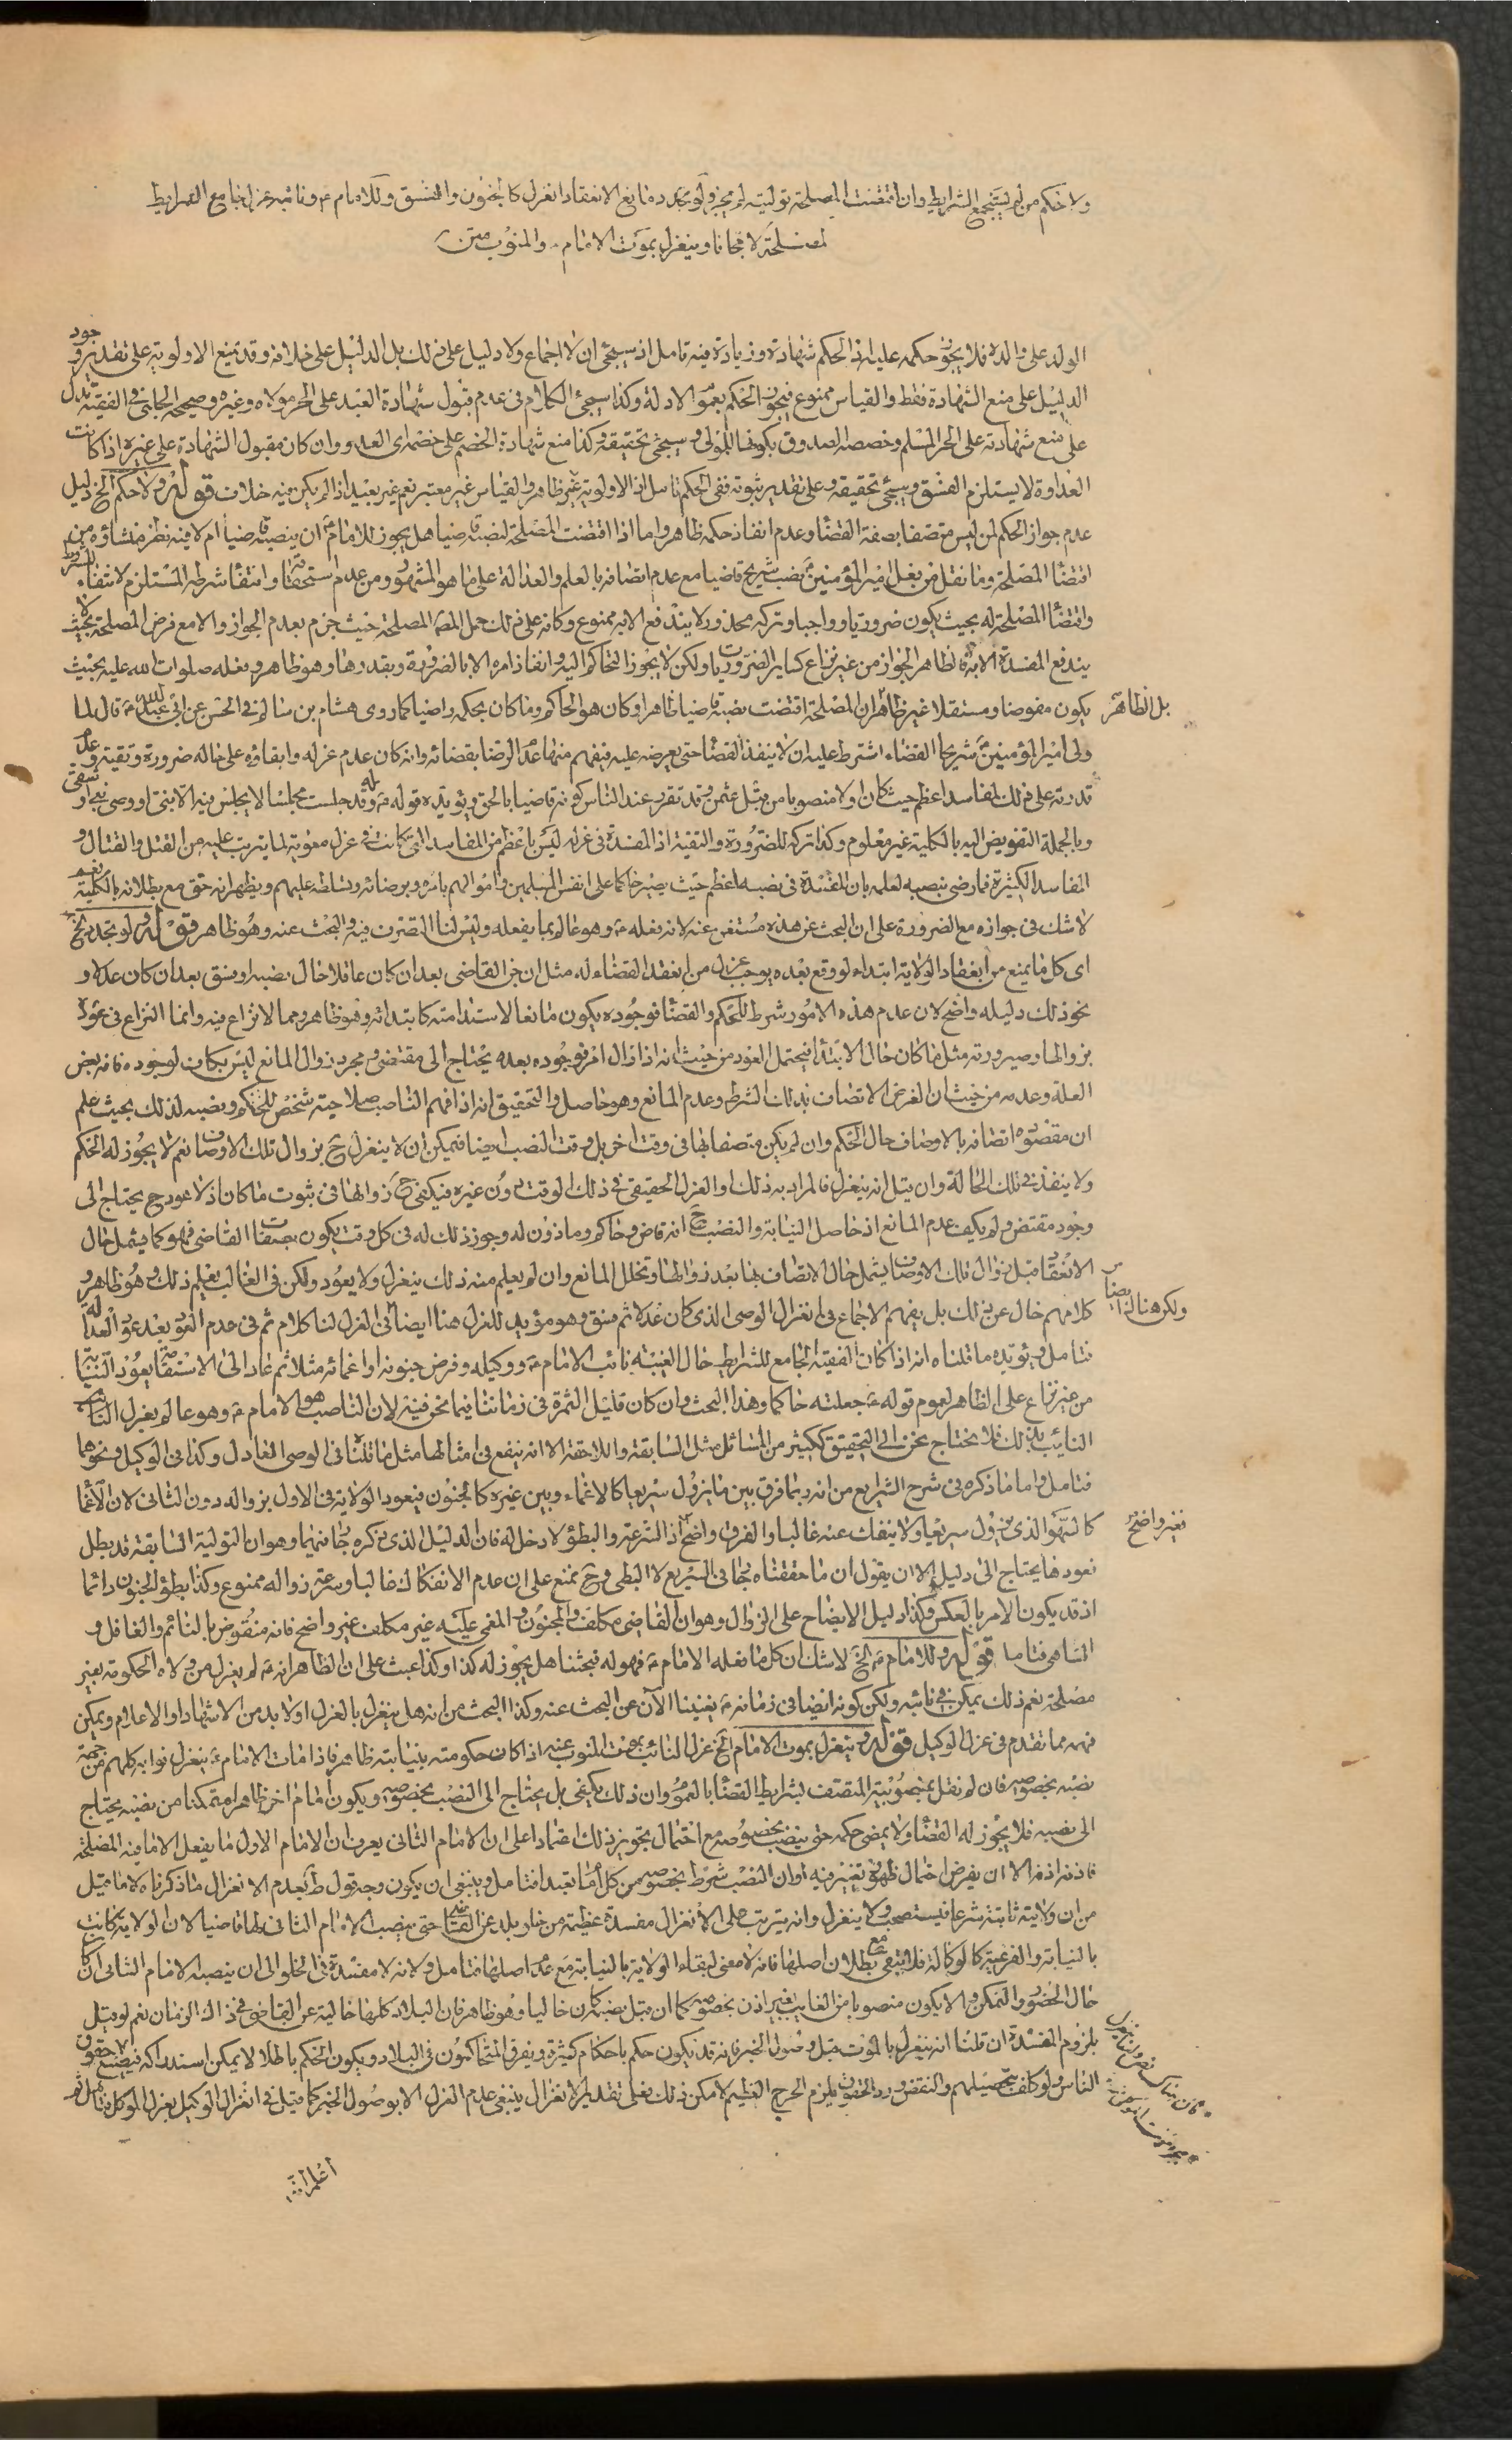 ولا حكم من لم يستجمع الشرايط وان اقتضت المصلحة توليته لم يجز ولو تجدد مانع الانعقاد انعزل كالجنون والفسق وللامام ع ونائبه عزل جامع الشرايط
لمصلحة لا مجانا وينعزل بموت الامام ع والمنوب
الولد على والده فلا يجوز حكمه عليه اذ الحكم شهادة وزيادة فيه تامل اذ سيجئ ان لا اجماع ولا دليل على ذلك بل الدليل على خلافه وقد يمنع الاولوية على تقدير وجود
الدليل على منع الشهادة فقط والقياس ممنوع فيجوز الحكم بعموم الادلة وكذا سيجئ الكلام في عدم قبول شهادة العبد على الحر مولاه وغيره وصحيحه الحلبي في الفقيه تدل
على منع شهادته على الحر المسلم وخصصه الصدوق بكونها للمولى وسيجئ تحقيقه وكذا منع شهادة الخصم على خصمه اى العدو وان كان مقبول الشهادة على غيره اذا كانت
العداوة لا يستلزم الفسق وسيجئ تحقيقه وعلى تقدير ثبوته ففى الحكم تامل اذ الاولوية غير ظاهر والقياس غير معتبر نعم غير بعيد اذا لم يكن فيه خلاف قوله ولا حكم الخ دليل
عدم جواز الحكم لمن ليس متصفا بصفة القضا وعدم انفاذ حكمه ظاهر واما اذا اقتضت المصلحة لنصبه قاضيا هل يجوز للامام ع ان ينصبه قاضيا ام لا فيه نظر منشاؤه من
اقتضا المصلحة وما نقل من فعل امير المؤمنين ع نصب شريح قاضيا مع عدم اتصافه بالعلم والعدالة على ما هو المشهور ومن عدم استحقاقه وانتفا شرطه المستلزم لانتفاء المشروط
واقتضا المصلحة له بحيث يكون ضروريا وواجبا وتركه محذورا لا يندفع الا به ممنوع وكانه على ذلك حمل المصنف المصلحة حيث جزم بعدم الجواز والا مع فرض المصلحة بحيث لا
يندفع المفسدة الا به فالظاهر الجواز من غير نزاع كساير الضروريات ولكن لا يجوز التحاكم اليه وانفاذ امره الا بالضرورة وبقدرها وهو ظاهر وفعله صلوات الله عليه بحيث
يكون مفوضا ومستقلا غير ظاهر ان المصلحة اقتضت نصبه قاضيا ظاهرا وكان هو الحاكم وما كان بحكمه راضيا كما روى هشام بن سالم في الحسن عن ابى عبد الله ع قال لما
بل الظاهر
ولى امير المؤمنين ع شريحا القضاء اشترط عليه ان لا ينفذ القضا حتى يعرضه عليه فيفهم منها عدم الرضا بقضائه وانه كان عدم عزله وابقاؤه على حاله ضرورة وتقية وعدم
قدرته على ذلك لمفاسد اعظم حيث كان اولا منصوبا من قبل عثمن وقد تقرر عند الناس كونه قاضيا بالحق ويؤيده قوله ع له وقد جلست مجلسا لا يجلس فيه الا نبى او وصى نبى او شقى
وبالجملة التفويض اليه بالكلية غير معلوم وكذا تركه للضرورة والتقية اذ المفسدة في عزله ليس باعظم من المفاسد التى كانت في عزل معوية لما يترتب عليه من القتل والقتال و
المفاسد الكثيرة فما رضى بنصبه لعلمه بان المفسدة في نصبه اعظم حيث يصير حاكما على انفس المسلمين واموالهم بامره وبرضائه وتسلطه عليهم ويظهر انه حق مع بطلانه بالكلية نعم
لا شك في جوازه مع الضرورة على ان البحث عن هذه مستغن عنه لانه فعله ع وهو عالم بما يفعله وليس لنا التصرف فيه والبحث عنه وهو ظاهر قوله ولو تجدد الخ
اى كل ما يمنع من انعقاد الولاية ابتداء لو وقع بعده يوجب عزل من انعقد القضاء له مثل ان جن القاضى بعد ان كان عاقلا حال نصبه او فسق بعد ان كان عدلا و
نحو ذلك دليله واضح لان عدم هذه الامور شرط للحكم والقضا فوجوده يكون مانعا لاستدامته كابتدائه وهو ظاهر ومما لا نزاع فيه وانما النزاع في عوده
بزوالها وصيرورته مثل ما كان حال الابتدا فيحتمل العود من حيث انه اذا زال امر فوجوده بعده يحتاج الى مقتضى ومجرد زوال المانع ليس بكاف لوجوده فانه بعض
العلة وعدمه من حيث ان الغرض الاتصاف بذلك الشرط وعدم المانع وهو حاصل والتحقيق انه اذا فهم الناصب صلاحية شخص للحكم ونصبه لذلك بحيث علم
ان مقصوده اتصافه بالاوصاف حال الحكم وان لم يكن متصفا بها في وقت اخر بل وقت النصب ايضا فيمكن ان لا ينعزل ح بزوال تلك الاوصاف نعم لا يجوز له الحكم
ولا ينفذ في تلك الحالة وان قيل انه ينعزل فالمراد به ذلك او العزل الحقيقى في ذلك الوقت دون غيره فيكفى ح زوالها في ثبوت ما كان اولا عود ح يحتاج الى
وجود مقتض ولم يكف عدم المانع اذ حاصل النيابة والنصب ح انه قاض وحاكم وماذون له وجوز ذلك له في كل وقت يكون بصفات القاضى فهو كما يشمل حال
الانعقاد قبل زوال تلك الاوصاف يشمل حال الاتصاف بها بعد زوالها وتخلل المانع وان لم يعلم منه ذلك ينعزل ولا يعود ولكن في الغالب يعلم ذلك وهو ظاهر و
كلامهم خال عن ذلك بل يفهم الاجماع في انعزال الوصى الذى كان عدلا ثم فسق وهو مؤيد للعزل هنا ايضا في العزل لنا كلام ثم في عدم العود بعد عود العدالة
ولكن هناك ايضا
فتامل ويؤيده ما قلناه انه اذا كان الفقيه الجامع للشرايط حال الغيبة نائب الامام ع ووكيله وفرض جنونه او اغمائه مثلا ثم عاد الى الاستقامة يعود النيابة
من غير نزاع على الظاهر لعموم قوله ع جعلته حاكما وهذا البحث وان كان قليل الثمرة في زماننا فيما نحن فيه لان الناصب هو الامام ع وهو عالم بعزل الناصب
النائب بذلك فلا يحتاج نحن الى التحقيق ككثير من المسائل مثل السابقة واللاحقة الا انه ينفع في امثالها مثل ما قلنا في الوصى العادل وكذا في الوكيل ونحوهما
فتامل واما ما ذكره في شرح الشرايع من انه ربما فرق بين ما يزول سريعا كالاغماء وبين غيره كالجنون فيعود الولاية في الاول بزواله دون الثانى لان الاغما
كالسهو الذى يزول سريعا ولا ينفك عنه غالبا والفرق واضح اذ السرعة والبطؤ لا دخل له فان الدليل الذى ذكره جا فيهما وهو ان التولية السابقة قد بطل
فغير واضح
فعودها يحتاج الى دليل الا ان يقول ان ما حققناه جا في السريع لا البطى وح يمنع على ان عدم الانفكاك غالبا وسرعة زواله ممنوع وكذا بطؤ الجنون دائما
اذ قد يكون الامر بالعكس وكذا دليل الايضاح على الزوال وهو ان القاضى مكلف والمجنون والمغمى عليه غير مكلف غير واضح فانه منقوض بالنائم والغافل و
الساهى فتامل قوله وللامام ع الخ لا شك ان كل ما فعله الامام ع فهو له فبحثنا هل يجوز له كذا وكذا عبث على ان الظاهر انه ع لم يعزل من ولاه الحكومة بغير
مصلحة نعم ذلك يمكن في نائبه ولكن كونه ايضا في زمانه ع يغنينا الآن عن البحث عنه وكذا البحث من انه هل ينعزل بالعزل او لا بد من الاشهاد او الاعلام ويمكن
فهمه مما تقدم في عزل الوكيل قوله وينعزل بموت الامام الخ عزل النائب بموت المنوب عنه اذا كان حكومته بنيابته ظاهر فاذا مات الامام ع ينعزل نوابه كلهم من جهة
نصبه بخصوصه فان لم نقل بمنصوبية المتصف بشرايط القضا بالعموم وان ذلك يكفى بل يحتاج الى النصب بخصوصه ويكون امام اخر ظاهرا متمكنا من نصبه يحتاج
الى نصبه فلا يجوز له القضا ولا يمضى حكمه حتى ينصب بخصوصه مع احتمال تجويز ذلك اعتمادا على ان الامام الثانى يعرف ان الامام الاول ما يفعل الا ما فيه المصلحة
فاذنه اذنه الا ان يفرض احتمال ظهور تغير فيه او ان النصب شرط بخصوصه من كل امام تعبدا فتامل وينبغى ان يكون وجه قول ط بعدم الانعزال ما ذكرناه لا ما قيل
من ان ولايته ثابتة شرعا فيستصحب ولا ينعزل وانه يترتب على الانعزال مفسدة عظيمة من خلو بلد عن القضا حتى ينصب الامام الثانى لها قاضيا لان الولاية كانت
بالنيابة والفرعية كالوكالة فلا تبقى مع بطلان اصلها فانه لا معنى لبقاء الولاية بالنيابة مع عدم اصلها فتامل ولانه لا مفسدة في الخلو الى ان ينصبه الامام الثانى ان كان
حال الحضور والتمكن والا يكون منصوبا من الغايب بغير اذن بخصوصه كما ان قبل نصبه كان خاليا وهو ظاهر فان البلاد كلها خالية عن القاضى في ذاك الزمان نعم لو قيل
بلزوم المفسدة ان قلنا انه ينعزل بالموت قبل وصول الخبر فانه قد يكون حكم باحكام كثيرة ويفرق المتحاكمون في البلاد ويكون الحكم باطلا لا يمكن استدراكه فيضيع حقوق
الناس ولو كلف بتحصيلهم والنقض ورد الحقوق يلزم الحرج العظيم لامكن ذلك فعلى تقدير الانعزال ينبغى عدم العزل الا بوصول الخبر كما قيل في انعزال الوكيل بعزل الموكل
اعلم ان